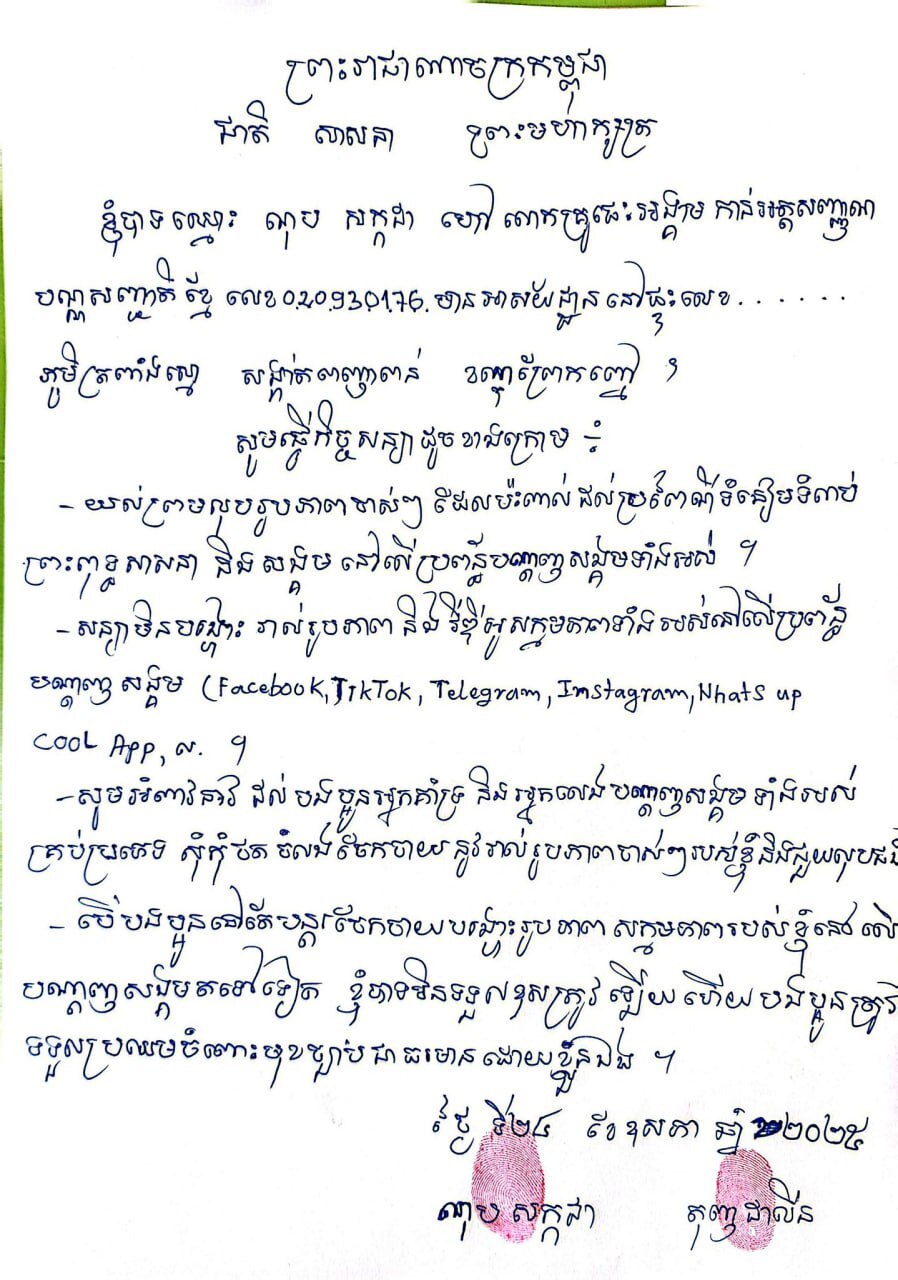 ព្រះរាជាណាចក្រកម្ពុជា
ជាតិ សាសនា ព្រះមហាក្សត្រ
ខ្ញុំបាទឈ្មោះ ណុប សក្កដា ហៅ លោកគ្រូធេះអង្គាម កាន់អត្តសញ្ញាណ
បណ្ណសញ្ជាតិខ្មែ លេខ 020930176. មានអាស័យដ្ឋាន នៅផ្ទះលេខ . . . . . .
ភូមិត្រពាំងស្មោ សង្កាត់ពញាពាន់ ខណ្ឌព្រែកព្នៅ ។
សូមធ្វើកិច្ចសន្យាដូចខាងក្រោម ÷
- យល់ព្រមលុបរូបភាពចាស់ៗ ដែលប៉ះពាល់ដល់ប្រពៃណីទំនៀមទំលាប់
ព្រះពុទ្ធសាសនា និង សង្គម នៅលើប្រព័ន្ធបណ្តាញសង្គមទាំងអស់ ។
- សន្យាមិនបង្ហោះ រាល់រូបភាព និងវីឌីអូសកម្មភាពទាំងអស់នៅលើប្រព័ន្ធ
បណ្តាញសង្គម (Facebook, TikTok, Telegram, Instagram, Whats up
COOL App, ល. ។
- សូមអំពាវនាវ ដល់ បងប្អូនអ្នកគាំទ្រ និងអ្នកលេងបណ្តាញសង្គម ទាំងអស់
គ្រប់ប្រភេទ សុំកុំថត ចំលងចែកចាយ នូវរាល់រូបភាពចាស់ៗរបស់ខ្ញុំនិងជួយលុបផង
- បើបងប្អូននៅតែបន្តចែកចាយបង្ហោះរូបភាព សកម្មភាពរបស់ខ្ញុំនៅលើ
បណ្តាញសង្គមតទៅទៀត ខ្ញុំបាទមិនទទួលខុសត្រូវឡើយ ហើយបងប្អូនត្រូវ
ទទួលប្រឈមចំពោះមុខច្បាប់ជាធរមានដោយខ្លួនឯង ។
ថ្ងៃ ទី២៤ ខែឧសភា ឆ្នាំ ២០២៥
ណុប សក្កដា តុញ ដាលីន